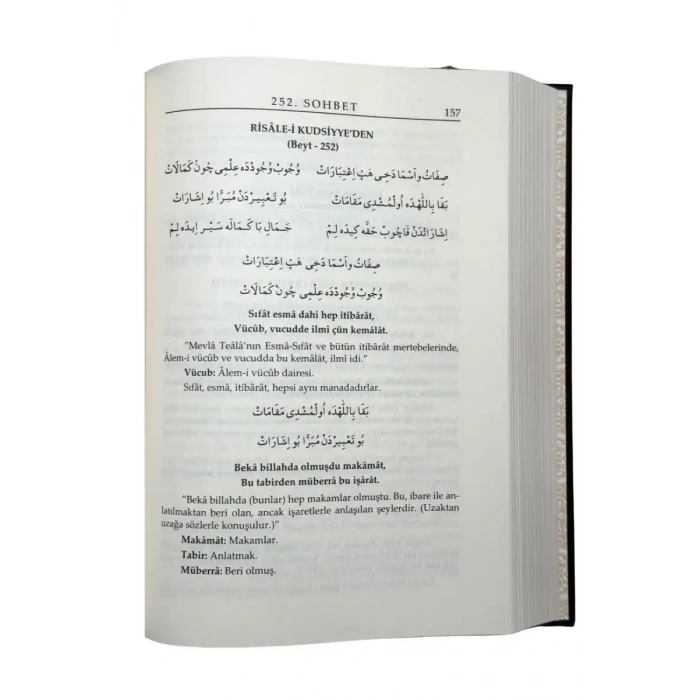 252. SOHBET 157
RİSÂLE-İ KUDSİYYE'DEN
(Beyt - 252)
صِفَاتُ وَاَسْمَا دَخِى هَپْ اِعْتِبَارَاتْ وُجُوبْ وُجُودْدَه عِلْمِى چُونْ كَمَالَاتْ
بَقَا بِاللّٰهْدَه اُولْمُشْدِى مَقَامَاتْ بُو تَعْبِيرْدَنْ مُبَرَّا بُو اِشَارَاتْ
اِشَارَاتْدَنْ قَاچُوبْ حَقَّه كِيدَه لِمْ جَمَالِ بَا كَمَالَه سَيْر اِيدَه لِمْ
صِفَاتُ وَاَسْمَا دَخِى هَپْ اِعْتِبَارَاتْ
وُجُوبْ وُجُودْدَه عِلْمِى چُونْ كَمَالَاتْ
Sıfât esmâ dahi hep itibârât,
Vücûb, vucudde ilmî çün kemâlât.
"Mevlâ Teâlâ'nın Esmâ-Sıfât ve bütün itibârât mertebelerinde,
Âlem-i vücûb ve vucudda bu kemâlât, ilmî idi."
Vücub: Âlem-i vücûb dairesi.
Sıfât, esmâ, itibârât, hepsi aynı manadadırlar.
بَقَا بِاللّٰهْدَه اُولْمُشْدِى مَقَامَاتْ
بُو تَعْبِيرْدَنْ مُبَرَّا بُو اِشَارَاتْ
Bekâ billahda olmuşdu makâmât,
Bu tabirden müberrâ bu işârât.
"Bekâ billahda (bunlar) hep makamlar olmuştu. Bu, ibare ile an-
latılmaktan beri olan, ancak işaretlerle anlaşılan şeylerdir. (Uzaktan
uzağa sözlerle konuşulur.)"
Makâmât: Makamlar.
Tabir: Anlatmak.
Müberrâ: Beri olmuş.